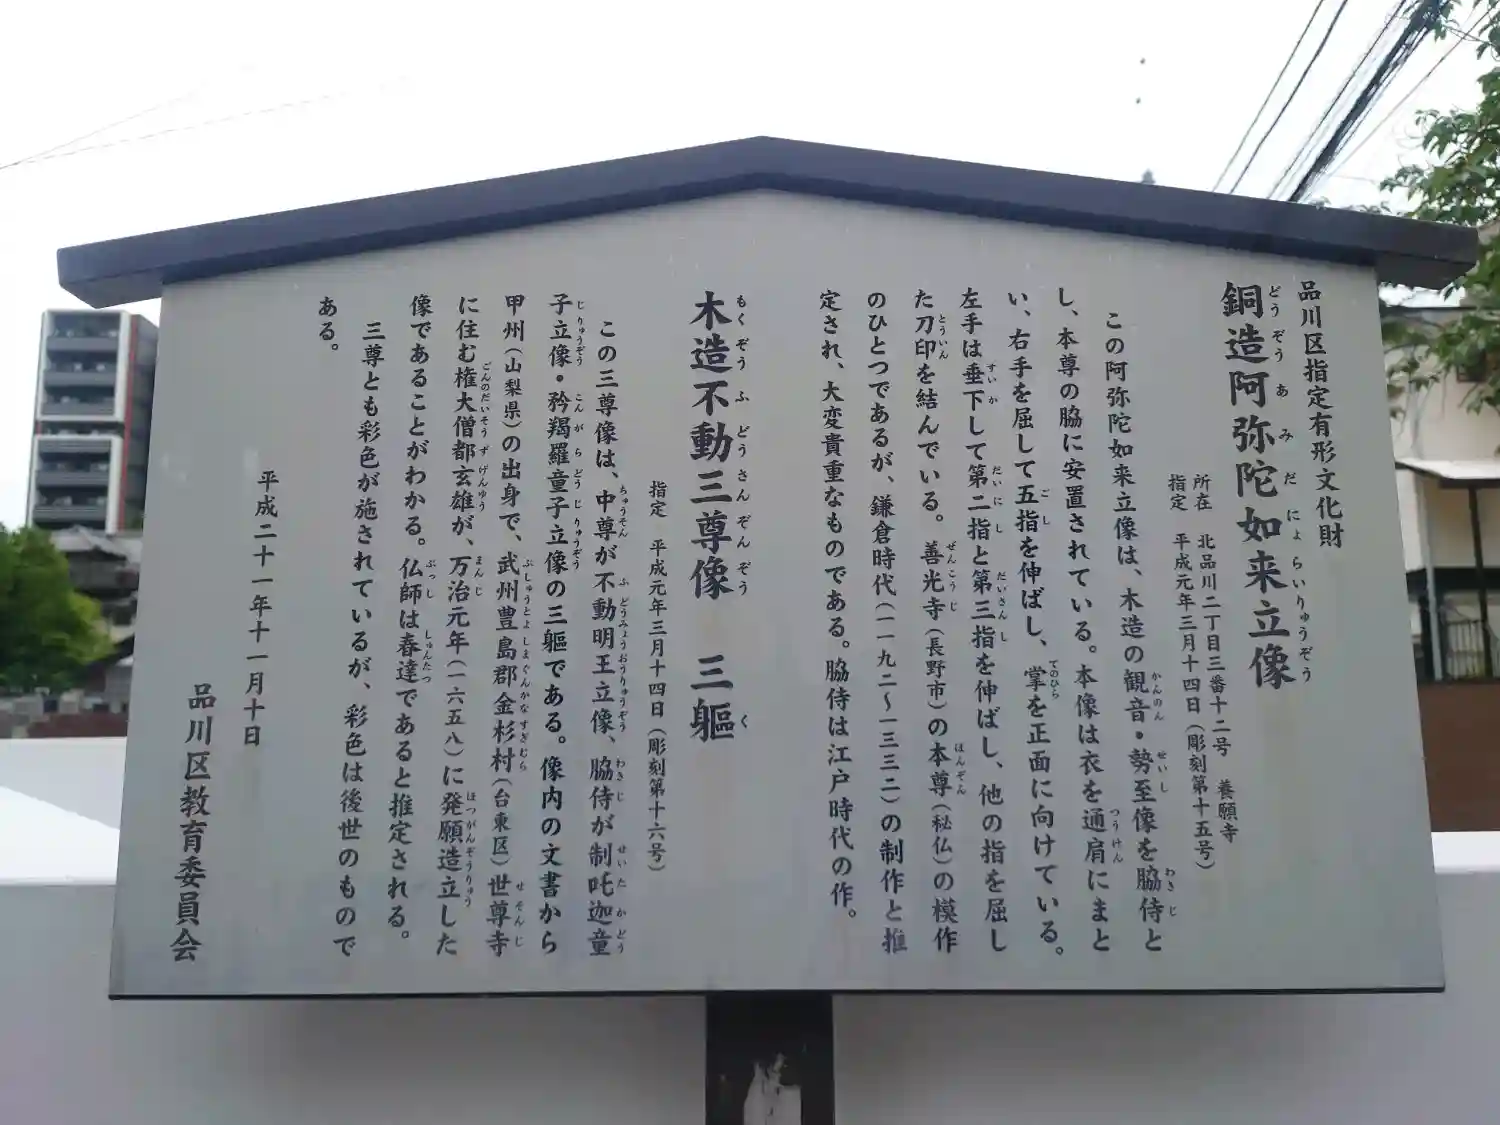 品川区指定有形文化財
銅造阿弥陀如来立像
どうぞうあみだにょらいりゅうぞう
所在　北品川二丁目三番十二号　養願寺
指定　平成元年三月十四日（彫刻第十五号）
この阿弥陀如来立像は、木造の観音・勢至像を脇侍と
し、本尊の脇に安置されている。本像は衣を通肩にまと
い、右手を屈して五指を伸ばし、掌を正面に向けている。
左手は垂下して第二指と第三指を伸ばし、他の指を屈し
た刀印を結んでいる。善光寺（長野市）の本尊（秘仏）の模作
のひとつであるが、鎌倉時代（一一九二～一三三二）の制作と推
定され、大変貴重なものである。脇侍は江戸時代の作。
木造不動三尊像　三軀
もくぞうふどうさんぞんぞう　く
指定　平成元年三月十四日（彫刻第十六号）
この三尊像は、中尊が不動明王立像、脇侍が制吒迦童
子立像・矜羯羅童子立像の三軀である。像内の文書から
甲州（山梨県）の出身で、武州豊島郡金杉村（台東区）世尊寺
に住む権大僧都玄雄が、万治元年（一六五八）に発願造立した
像であることがわかる。仏師は春達であると推定される。
三尊とも彩色が施されているが、彩色は後世のもので
ある。
平成二十一年十一月十日
品川区教育委員会